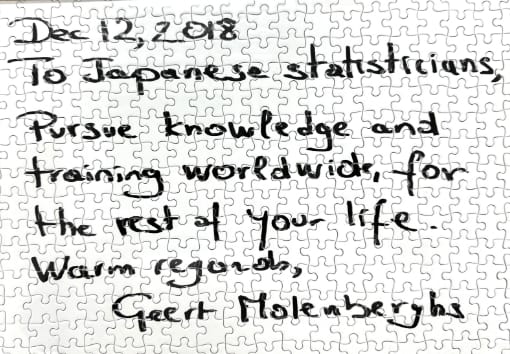 Dec 12, 2018
To Japanese statisticians,
Pursue knowledge and
training worldwide, for
the rest of your life.
Warm regards,
Geert Molenberghs